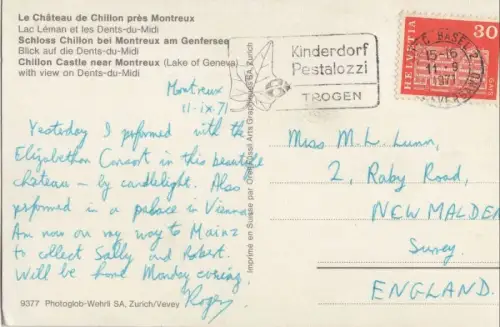 Le Château de Chillon près Montreux
Lac Léman et les Dents-du-Midi
Schloss Chillon bei Montreux am Genfersee
Blick auf die Dents-du-Midi
Chillon Castle near Montreux (Lake of Geneva)
with view on Dents-du-Midi
Montreux
11-ix.71
Yesterday I performed with the
Elizabethan Consort in this beautiful
château – by candlelight. Also
performed in a palace in Vienna.
Am now on my way to Mainz
to collect Sally and Robert.
Will be home Monday evening.
Roger
9377 Photoglob-Wehrli SA, Zurich/Vevey
Imprimé en Suisse par Orell Füssli Arts Graphiques SA, Zurich
Kinderdorf
Pestalozzi
TROGEN
BASEL 2
15-16
11-9
1971
HELVETIA
30
Miss M. L. Lunn,
2, Raby Road,
NEW MALDEN
Surrey.
ENGLAND.